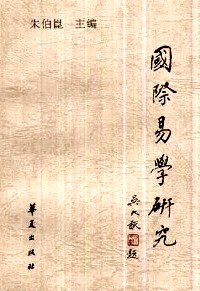 朱伯崑 主编
國際易學研究
吳大猷 題
華夏出版社